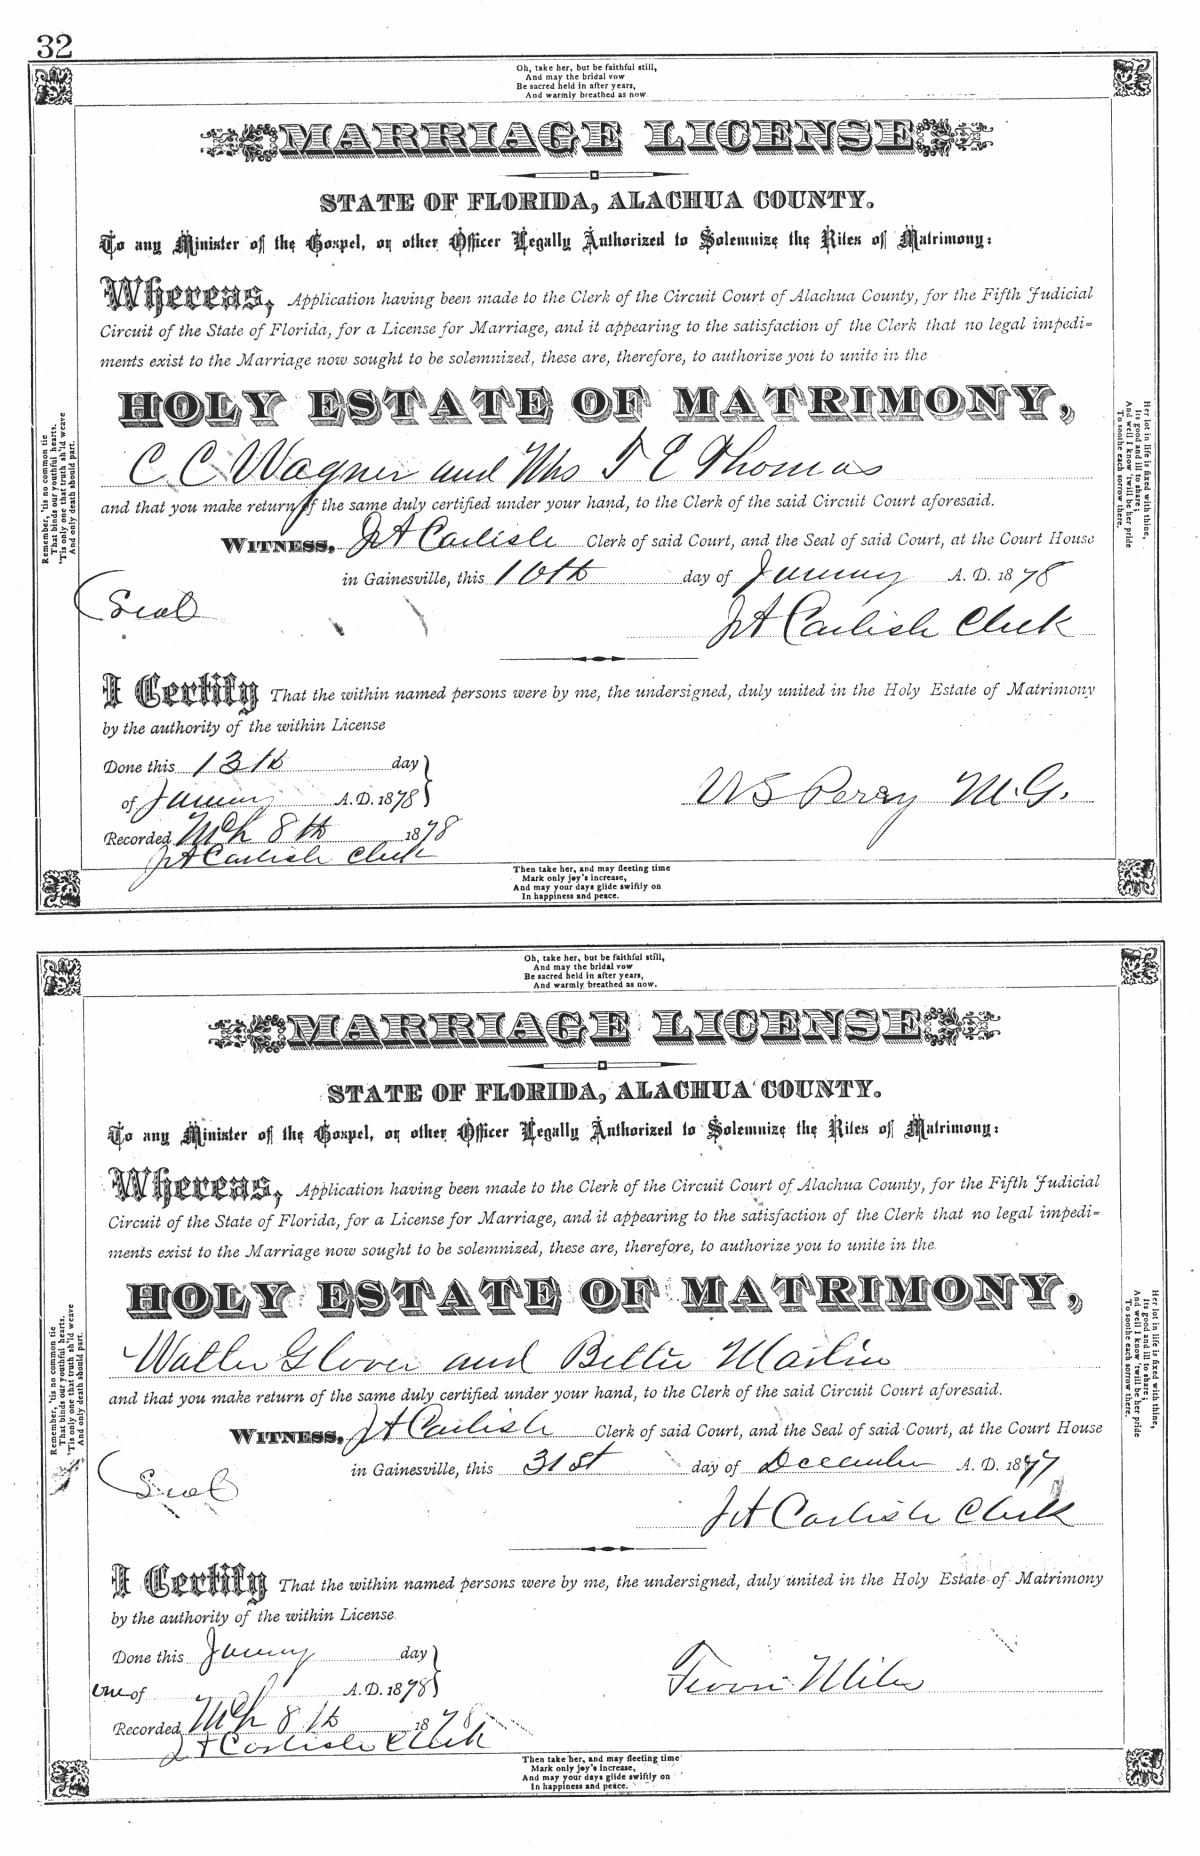 32
Oh, take her, but be faithful still,
And may the bridal vow
Be sacred held in after years,
And warmly breathed as now.
MARRIAGE LICENSE
STATE OF FLORIDA, ALACHUA COUNTY.
To any Minister of the Gospel, or other Officer Legally Authorized to Solemnize the Rites of Matrimony:
Whereas, Application having been made to the Clerk of the Circuit Court of Alachua County, for the Fifth Judicial
Circuit of the State of Florida, for a License for Marriage, and it appearing to the satisfaction of the Clerk that no legal impedi-
ments exist to the Marriage now sought to be solemnized, these are, therefore, to authorize you to unite in the
HOLY ESTATE OF MATRIMONY,
C C Wagner and Mrs T E Thomas
and that you make return of the same duly certified under your hand, to the Clerk of the said Circuit Court aforesaid.
WITNESS, JA Carlisle Clerk of said Court, and the Seal of said Court, at the Court House
in Gainesville, this 10th day of January A. D. 1878
(Seal
JA Carlisle Clerk
I Certify That the within named persons were by me, the undersigned, duly united in the Holy Estate of Matrimony
by the authority of the within License
Done this 13th day
of January A.D. 1878
W S Perry M.G.
Recorded Mch 8th 1878
JA Carlisle Clerk
Then take her, and may fleeting time
Mark only joy's increase,
And may your days glide swiftly on
In happiness and peace.
Remember, 'tis no common tie
That binds our youthful hearts,
'Tis only one that truth sh'ld weave
And only death should part.
Her lot in life is fixed with thine,
Its good and ill to share;
And well I know 'twill be her pride
To soothe each sorrow there.
Oh, take her, but be faithful still,
And may the bridal vow
Be sacred held in after years,
And warmly breathed as now.
MARRIAGE LICENSE
STATE OF FLORIDA, ALACHUA COUNTY.
To any Minister of the Gospel, or other Officer Legally Authorized to Solemnize the Rites of Matrimony:
Whereas, Application having been made to the Clerk of the Circuit Court of Alachua County, for the Fifth Judicial
Circuit of the State of Florida, for a License for Marriage, and it appearing to the satisfaction of the Clerk that no legal impedi-
ments exist to the Marriage now sought to be solemnized, these are, therefore, to authorize you to unite in the
HOLY ESTATE OF MATRIMONY,
Walter Glover and Bettie Martin
and that you make return of the same duly certified under your hand, to the Clerk of the said Circuit Court aforesaid.
WITNESS, JA Carlisle Clerk of said Court, and the Seal of said Court, at the Court House
in Gainesville, this 31st day of December A. D. 1877
(Seal
JA Carlisle Clerk
I Certify That the within named persons were by me, the undersigned, duly united in the Holy Estate of Matrimony
by the authority of the within License
Done this January day
one of A.D. 1878
Miles
Recorded Mch 8th 1878
JA Carlisle Clerk
Then take her, and may fleeting time
Mark only joy's increase,
And may your days glide swiftly on
In happiness and peace.
Remember, 'tis no common tie
That binds our youthful hearts,
'Tis only one that truth sh'ld weave
And only death should part.
Her lot in life is fixed with thine,
Its good and ill to share;
And well I know 'twill be her pride
To soothe each sorrow there.